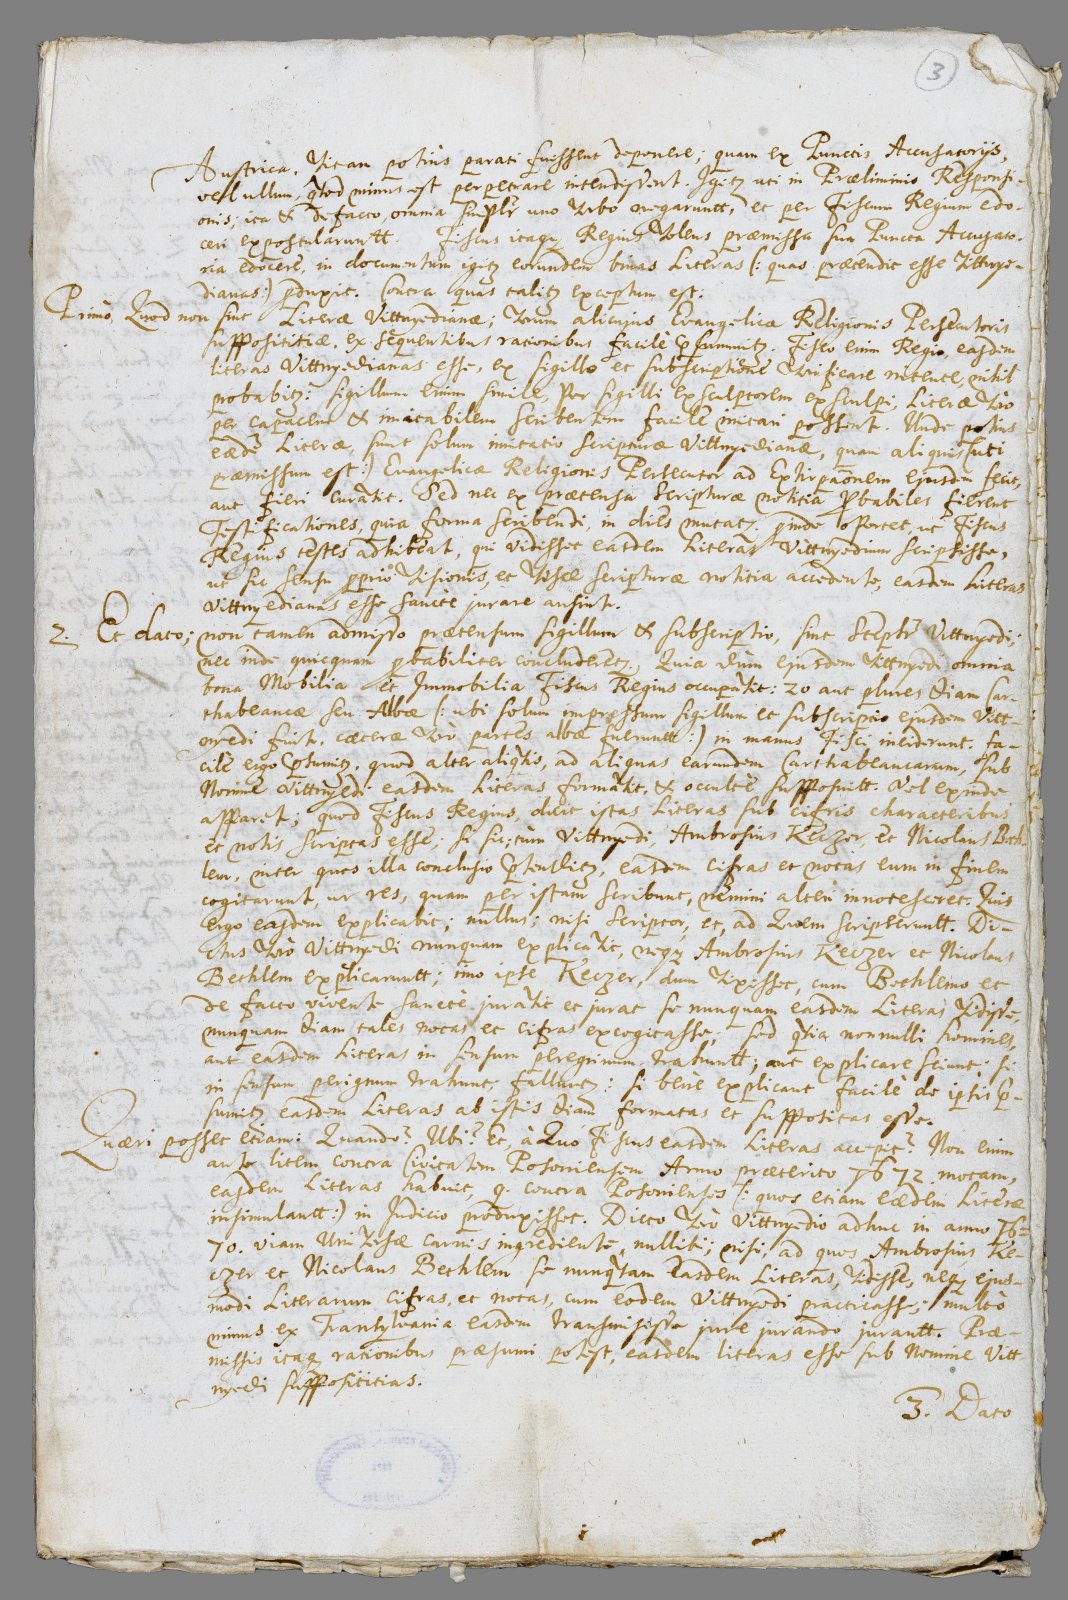 3
Austrica, Vitam potius parati fuissent deponere; quam ex Punctis Accusatorijs,
vel ullum, quod minus est perpetrare intendissent. Igitr uti in Præliminio Responsi-
onis; ita et de facto, omnia simplr uno Verbo negaruntt, et per Fiscum Regium edo-
ceri expostularuntt. Fiscus itaque Regius Volens præmissa sua Puncta Accusato-
ria edocere, in documentum igitr eorundem binas Literas (: quas prætendit esse Vittnye-
dianas:) produxit. Contra quas talitr exceptum est.
Primò, Quod non sint Literæ Vittnyedianæ; Verum alicujus Evangelicæ Religionis Persecutoris
supposititiæ, ex sequentibus rationibus facilè præsumitr. Fisco enim Regio, easdem
literas Vittnyedianas esse, ex sigillo et subscriptione Verificare nitente, nihil
probabitr: sigillum enim simile, per sigilli exsculptorem exsculpi, Literæ Verò
per capacem et imitabilem scribentem facile imitari possent. Unde potius
eædem Literæ, sunt solum imitatio scripturæ Vittnyedianæ, quam aliquis (uti
præmissum est:) Evangelicæ Religionis Persecutor ad Extirpaonem ejusdem fecit,
aut fieri curavit. Sed nec ex prætensa scripturæ notitia probabiles fierent
Testificationes, quia forma scribendi, in dies mutatr. proinde oportet, ut Fiscus
Regius testes adhibeat, qui vidisset easdem Literas Vittnyedium scripsisse,
ut sic sensu proprio Visionis, et Veræ scripturæ notitia accedente, easdem Literas
Vittnyedianas esse sanctè jurare ausint.
2. Et dato; non tamen admisso prætensum sigillum et subscriptio, sint Stephi Vittnyedi;
nec inde quicquam probabiliter concluderetr. Quia dum ejusdem Vittnyedi omnia
bona Mobilia et Immobilia Fiscus Regius occupavit: 20 aut plures etiam Car-
thabiancæ seu Albæ (: ubi solum impressum sigillum et subscriptio ejusdem Vitt-
nyedi sint, cæteræ Verò partes albæ fueruntt:) in manus Fisci inciderunt. Fa-
cilè ergo præsumitr, quod alter aliquis, ad aliquas earundem Carthabiancarum, sub
Nomine Vittnyedi easdem Literas formavit, et occultè supposuitt. Vel exinde
apparet; quod Fiscus Regius, dicit istas Literas sub cifris characteribus
et notis scriptas esse; si sic; tùm Vittnyedi, Ambrosius Keczer, et Nicolaus Beth-
len, inter quos illa conclusio prætenditr, easdem cifras et notas eum in finem
cogitarunt, ut res, quam per istam scribunt, nemini alteri innotesceret. Quis
ergo easdem explicabit; nullus; nisi scriptor, et, ad Quem scripseruntt. Di-
ctus Verò Vittnyedi nunquam explicavit, neque Ambrosius Keczer et Nicolaus
Bethlem explicaruntt; imo ipse Keczer, dum Vixisset, cum Bethlemo et
de facto vivente sanctè juravit et jurat se nunquam easdem Literas Vidisse,
nunquam etiam tales notas et cifras excogitasse; sed quia nonnulli homines,
aut easdem Literas in sensum peregrinum trahuntt; aut explicare sciunt: si
in sensum perignum trahunt, falluntr: si benè explicant facilè de ipsis præ-
sumitr easdem Literas ab istis etiam formatas et suppositas esse.
Quæri posset etiam: Quando? Ubi? Et, à Quo Fiscus easdem Literas accepit? Non enim
ante litem contra Civitatem Posoniensem Anno præterito 1672 motam,
easdem Literas habuit, q. contra Posonienses (: quos etiam eædem Literæ
insimulantt:) in Judicio produxisset. Dicto Verò Vittnyedio adhuc in anno 16=
70. viam Universæ carnis ingrediente, nulliti; nisi, ad quos Ambrosius Ke-
czer et Nicolaus Bethlem se nunquam easdem Literas, Vidisse, neque ejus-
modi Literarum cifras, et notas, cum eodem Vittnyedi practicasse; multò
minus ex Transylvania easdem transmisisse jure jurando jurantt. Præ-
missis itaque rationibus præsumi potest, easdem literas esse sub Nomine Vitt
nyedi supposititias.
3. Dato